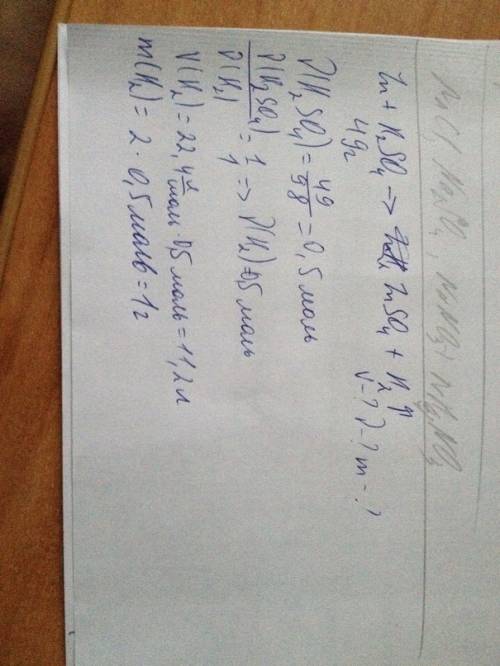 Zn + H₂SO₄ → ZnSO₄ + H₂↑
49г V-? ν-? m-?
ν(H₂SO₄) = 49/98 = 0,5 моль
ν(H₂SO₄)/ν(H₂) = 1/1 => ν(H₂) = 0,5 моль
V(H₂) = 22,4 л/моль · 0,5 моль = 11,2 л
m(H₂) = 2 · 0,5 моль = 1г